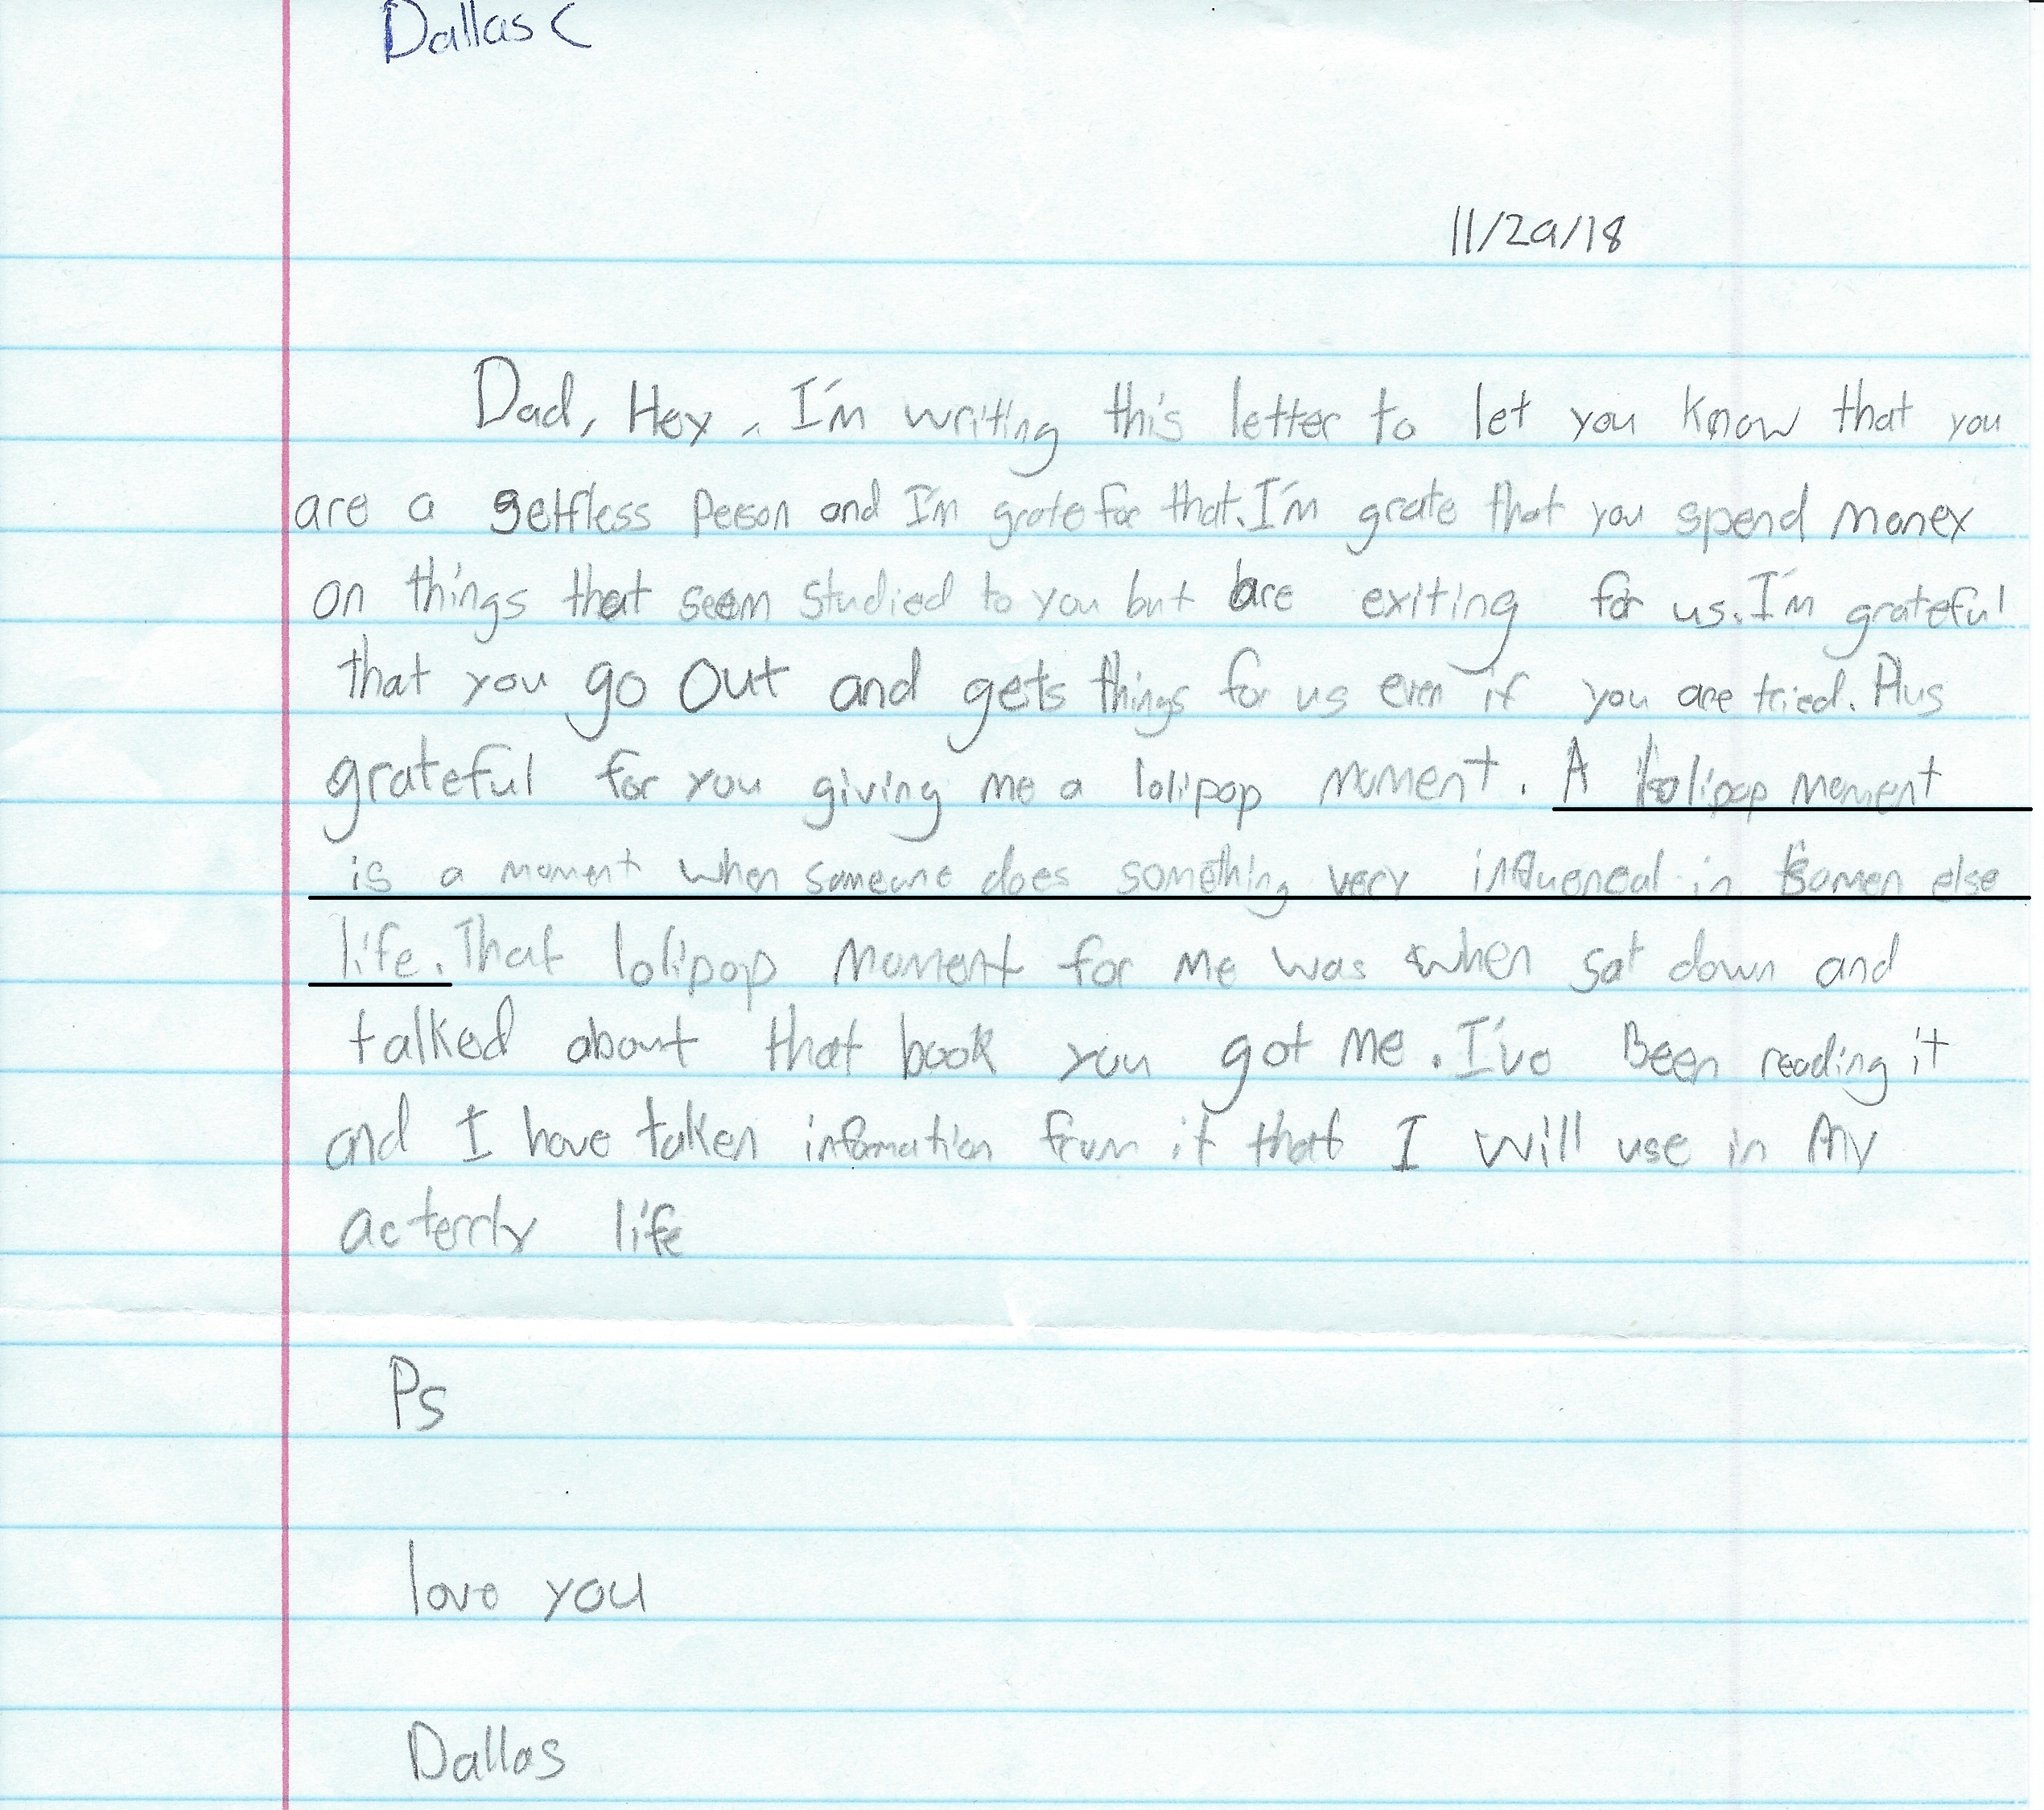 Dallas C
11/29/18
Dad, Hey, I'm writing this letter to let you know that you
are a selfless person and I'm grate for that. I'm grate that you spend money
on things that seem studied to you but are exiting for us. I'm grateful
that you go out and gets things for us even if you are tried. Plus
grateful for you giving me a lolipop moment. A lolipop moment
is a moment when someone does something very influencal in somen else
life. That lolipop moment for me was when sat down and
talked about that book you got me. I've Been reading it
and I have taken information from it that I will use in My
acterrly life
Ps
love you
Dallas